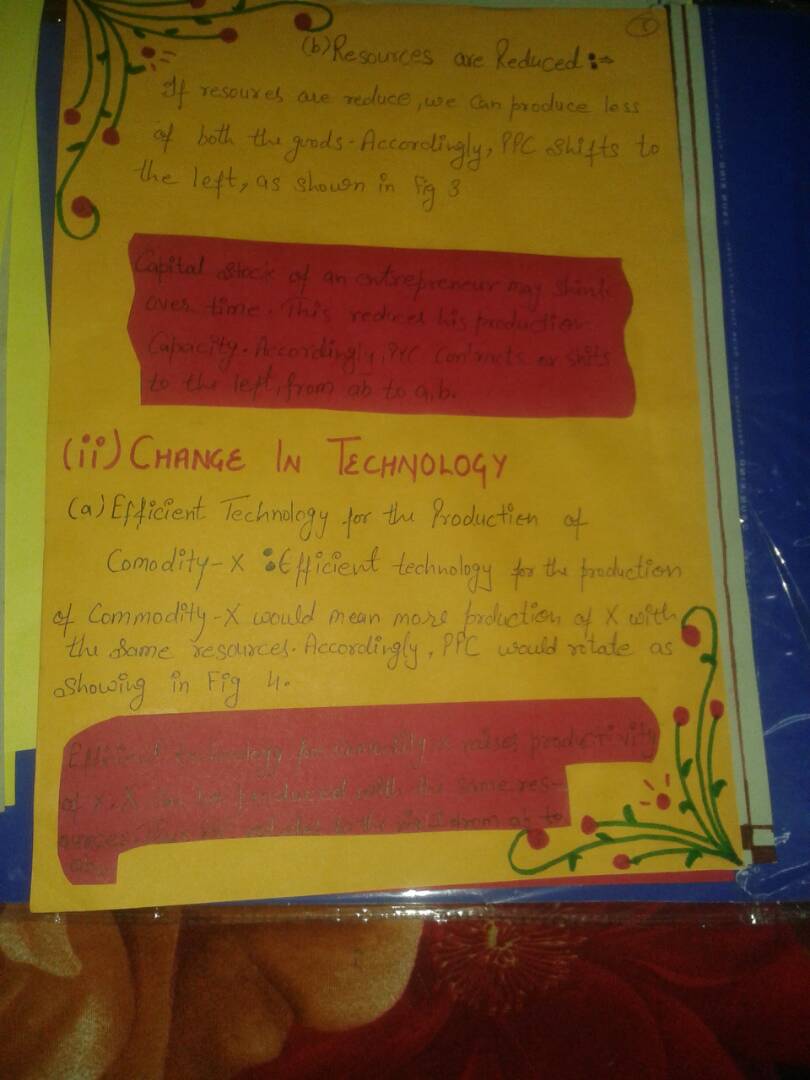 (b) Resources are Reduced :→
If resoures are reduce, we can produce less
of both the goods. Accordingly, PPC shifts to
the left, as shown in fig 3
Capital stock of an entrepreneur may shink
over time. This reduces his production
Capacity. Accordingly, PPC Contracts or shits
to the left, from ab to a,b.
(ii) CHANGE IN TECHNOLOGY
(a) Efficient Technology for the Production of
Comodity-X : Efficient technology for the production
of Commodity-X would mean more prduction of X with
the same resources. Accordingly, PPC would rotate as
showing in Fig 4.
Efficient technology for Comodity X raises productivity
of X. X can be produced with the same res-
ources. Thus PPC to the from ab to
ab,